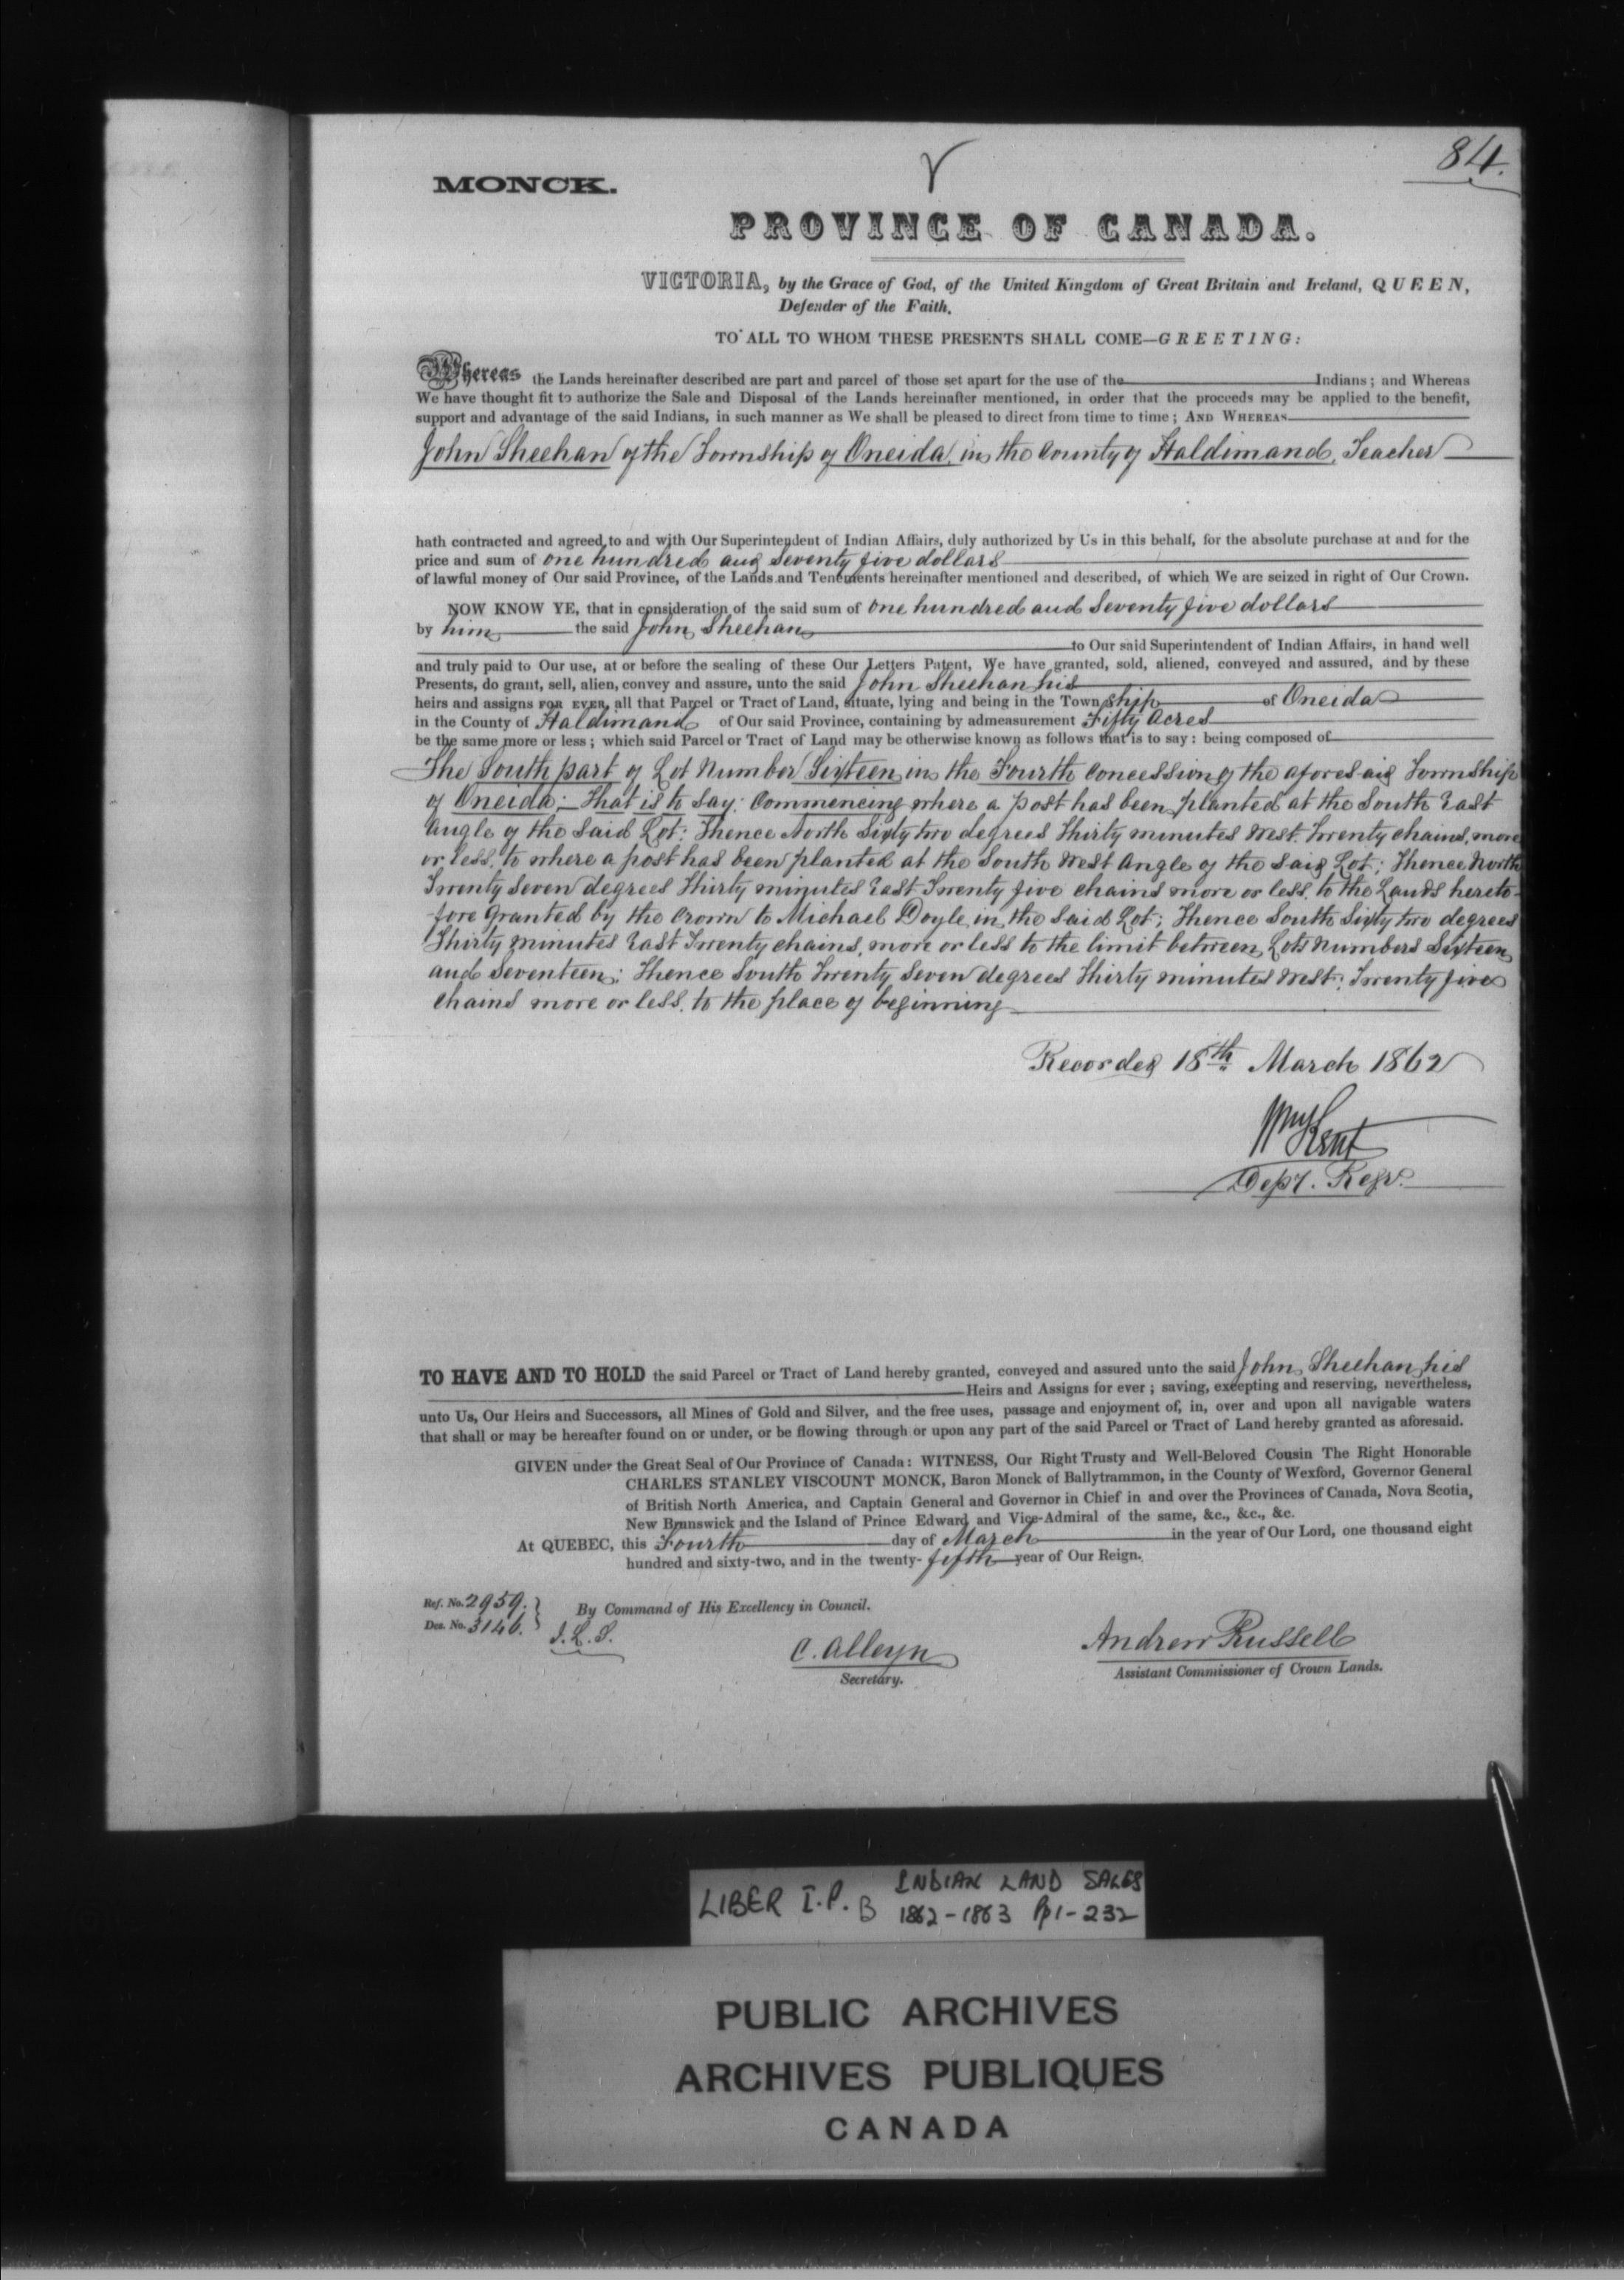 84.
MONCK.
PROVINCE OF CANADA.
VICTORIA, by the Grace of God, of the United Kingdom of Great Britain and Ireland, QUEEN,
Defender of the Faith.
TO ALL TO WHOM THESE PRESENTS SHALL COME—GREETING:
Whereas the Lands hereinafter described are part and parcel of those set apart for the use of the Indians; and Whereas
We have thought fit to authorize the Sale and Disposal of the Lands hereinafter mentioned, in order that the proceeds may be applied to the benefit,
support and advantage of the said Indians, in such manner as We shall be pleased to direct from time to time; AND WHEREAS
John Sheehan of the Township of Oneida, in the County of Haldimand, Teacher
hath contracted and agreed to and with Our Superintendent of Indian Affairs, duly authorized by Us in this behalf, for the absolute purchase at and for the
price and sum of one hundred and Seventy five dollars
of lawful money of Our said Province, of the Lands and Tenements hereinafter mentioned and described, of which We are seized in right of Our Crown.
NOW KNOW YE, that in consideration of the said sum of one hundred and Seventy five dollars
by him the said John Sheehan
to Our said Superintendent of Indian Affairs, in hand well
and truly paid to Our use, at or before the sealing of these Our Letters Patent, We have granted, sold, aliened, conveyed and assured, and by these
Presents, do grant, sell, alien, convey and assure, unto the said John Sheehan his
heirs and assigns FOR EVER, all that Parcel or Tract of Land, situate, lying and being in the Township of Oneida
in the County of Haldimand of Our said Province, containing by admeasurement Fifty Acres
be the same more or less; which said Parcel or Tract of Land may be otherwise known as follows that is to say: being composed of
The South part of Lot Number Sixteen in the Fourth Concession of the aforesaid Township
of Oneida;—That is to say: Commencing where a post has been planted at the South East
Angle of the said Lot: Thence North Sixty two degrees Thirty minutes West. Twenty chains, more
or less, to where a post has been planted at the South West Angle of the said Lot; Thence North
Twenty Seven degrees Thirty minutes East Twenty five chains more or less, to the Lands hereto-
fore Granted by the Crown to Michael Doyle in the said Lot; Thence South Sixty two degrees
Thirty minutes East Twenty chains, more or less to the limit between Lots Numbers Sixteen
and Seventeen; Thence South Twenty Seven degrees Thirty minutes West; Twenty five
chains more or less, to the place of beginning
Recorded 18th March 1862
Wm Kent
Depy. Regr.
TO HAVE AND TO HOLD the said Parcel or Tract of Land hereby granted, conveyed and assured unto the said John Sheehan his
Heirs and Assigns for ever; saving, excepting and reserving, nevertheless,
unto Us, Our Heirs and Successors, all Mines of Gold and Silver, and the free uses, passage and enjoyment of, in, over and upon all navigable waters
that shall or may be hereafter found on or under, or be flowing through or upon any part of the said Parcel or Tract of Land hereby granted as aforesaid.
GIVEN under the Great Seal of Our Province of Canada: WITNESS, Our Right Trusty and Well-Beloved Cousin The Right Honorable
CHARLES STANLEY VISCOUNT MONCK, Baron Monck of Ballytrammon, in the County of Wexford, Governor General
of British North America, and Captain General and Governor in Chief in and over the Provinces of Canada, Nova Scotia,
New Brunswick and the Island of Prince Edward and Vice-Admiral of the same, &c., &c., &c.
At QUEBEC, this Fourth day of March in the year of Our Lord, one thousand eight
hundred and sixty-two, and in the twenty-fifth year of Our Reign.
Ref. No. 2959. } By Command of His Excellency in Council.
Des. No. 3146.
J.L.S.
C. Alleyn
Secretary.
Andrew Russell
Assistant Commissioner of Crown Lands.
LIBER I.P. B INDIAN LAND SALES
1862-1863 Pp 1-232
PUBLIC ARCHIVES
ARCHIVES PUBLIQUES
CANADA